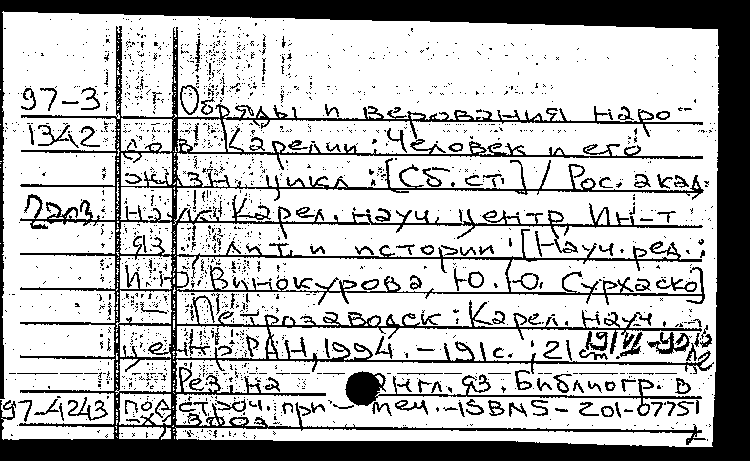 97-3 Обряды и верования наро-
1342 дов Карелии: Человек и его
жизн. цикл : [Сб. ст.] / Рос. акад.
наук. Карел. науч. центр, Ин-т
яз., лит. и истории; [Науч. ред.:
И.Ю. Винокурова, Ю.Ю. Сурхаско]
. - Петрозаводск : Карел. науч.
центр РАН, 1994. - 191 с. ; 21 см
Рез. на англ. яз. Библиогр. в
97-4243 подстроч. прим. - ISBN 5-201-07751